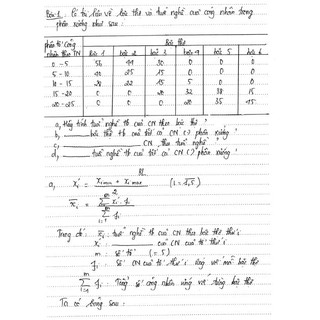 Bài 1: Có tài liệu về bậc thợ và tuổi nghề của công nhân trong
phân xưởng như sau:
phân tổ công nhân theo TN
Bậc thợ
Bậc 1 bậc 2 bậc 3 bậc 4 bậc 5 bậc 6
0 - 5 56 44 30 0 0 0
5 - 10 40 25 15 0 0 0
10 - 15 28 22 15 5 0 0
15 - 20 0 0 20 32 18 15
20 - 25 0 0 0 20 35 45
a, Hãy tính tuổi nghề tb của CN theo bậc thợ
b, bậc thợ tb của từ cả CN phân xưởng
c, CN theo tuổi nghề
d, tuổi nghề tb của từ cả CN phân xưởng
a, xi' = (xi min + xi max) / 2 (i = 1,5)
x̄i = Σ xi' . fi / Σ fi
Trong đó: x̄i: tuổi nghề tb của CN theo bậc thợ thứ i
xi: của CN của tổ thứ i
m: số tổ (= 5)
fi: số CN của tổ thứ i ứng với mỗi bậc thợ
Σ fi: Tổng số công nhân ứng với từng bậc thợ
Ta có bảng sau: